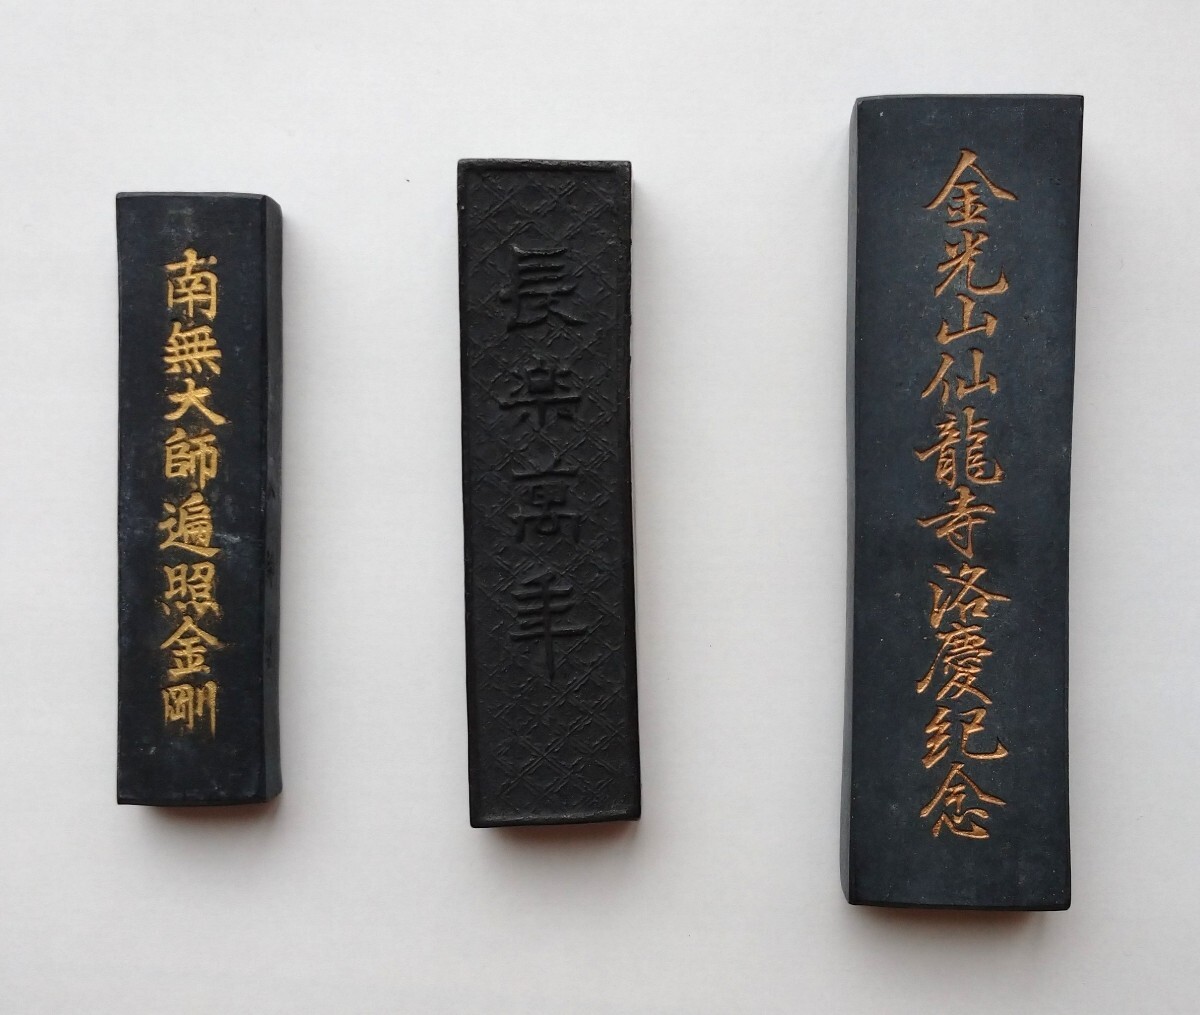 南無大師遍照金剛
長楽萬年
金光山仙龍寺洛慶紀念